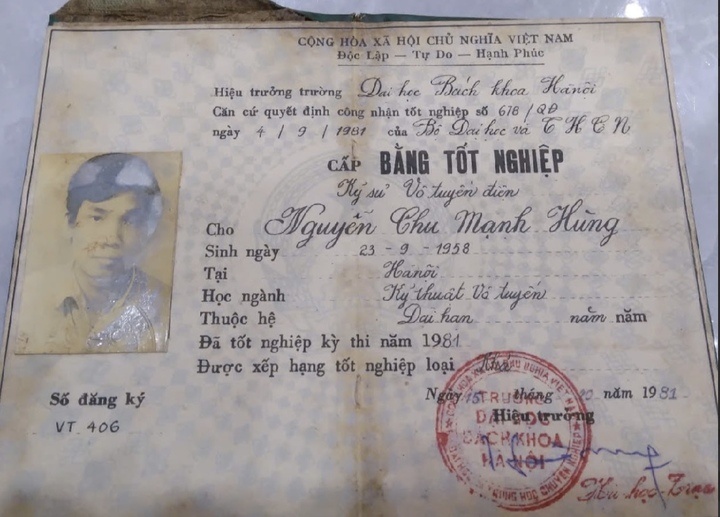 CỘNG HÒA XÃ HỘI CHỦ NGHĨA VIỆT NAM
Độc Lập — Tự Do — Hạnh Phúc
Hiệu trưởng trường Đại học Bách khoa Hà nội
Căn cứ quyết định công nhận tốt nghiệp số 678/QĐ
ngày 4/9/1981 của Bộ Đại học và T H C N
CẤP BẰNG TỐT NGHIỆP
Kỹ sư Vô tuyến điện
Cho Nguyễn Chu Mạnh Hùng
Sinh ngày 23-9-1958
Tại Hà nội
Học ngành Kỹ thuật Vô tuyến
Thuộc hệ Dài hạn năm năm
Đã tốt nghiệp kỳ thi năm 1981
Được xếp hạng tốt nghiệp loại
Ngày 15 tháng năm 1981
Số đăng ký
Hiệu trưởng
VT 406
TRƯỜNG
ĐẠI HỌC
BÁCH KHOA
HÀ NỘI